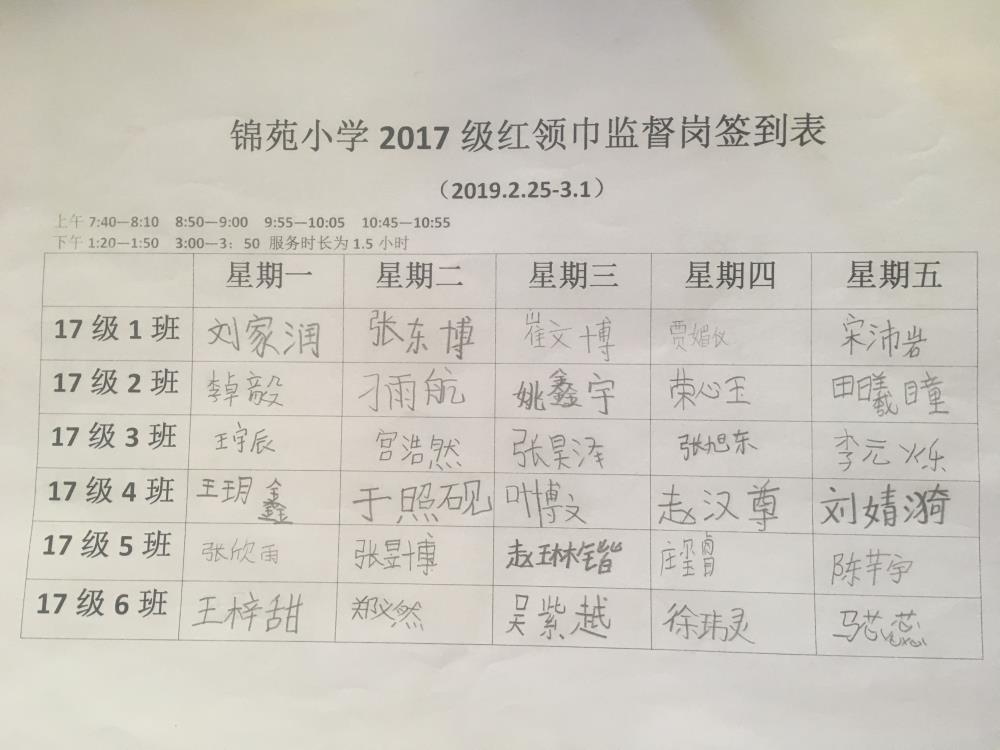 锦苑小学2017级红领巾监督岗签到表
（2019.2.25-3.1）
上午 7:40—8:10 8:50—9:00 9:55—10:05 10:45—10:55
下午 1:20—1:50 3:00—3：50 服务时长为 1.5 小时
星期一 星期二 星期三 星期四 星期五
17级1班 刘家润 张东博 崔文博 贾媚 宋沛岩
17级2班 李倬毅 刁雨航 姚鑫宇 荣心玉 田曦瞳
17级3班 王宇辰 宫浩然 张昊泽 张旭东 李元烁
17级4班 王玥鑫 于照砚 叶博文 赵汉尊 刘婧漪
17级5班 张欣雨 张昱博 赵琳锴 庄睿 陈芋宇
17级6班 王梓甜 郑义然 吴紫越 徐玮灵 马芯蕊